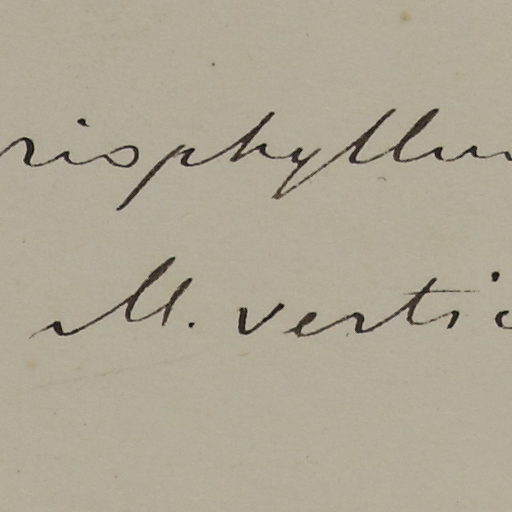 risphyllu
M. vertic